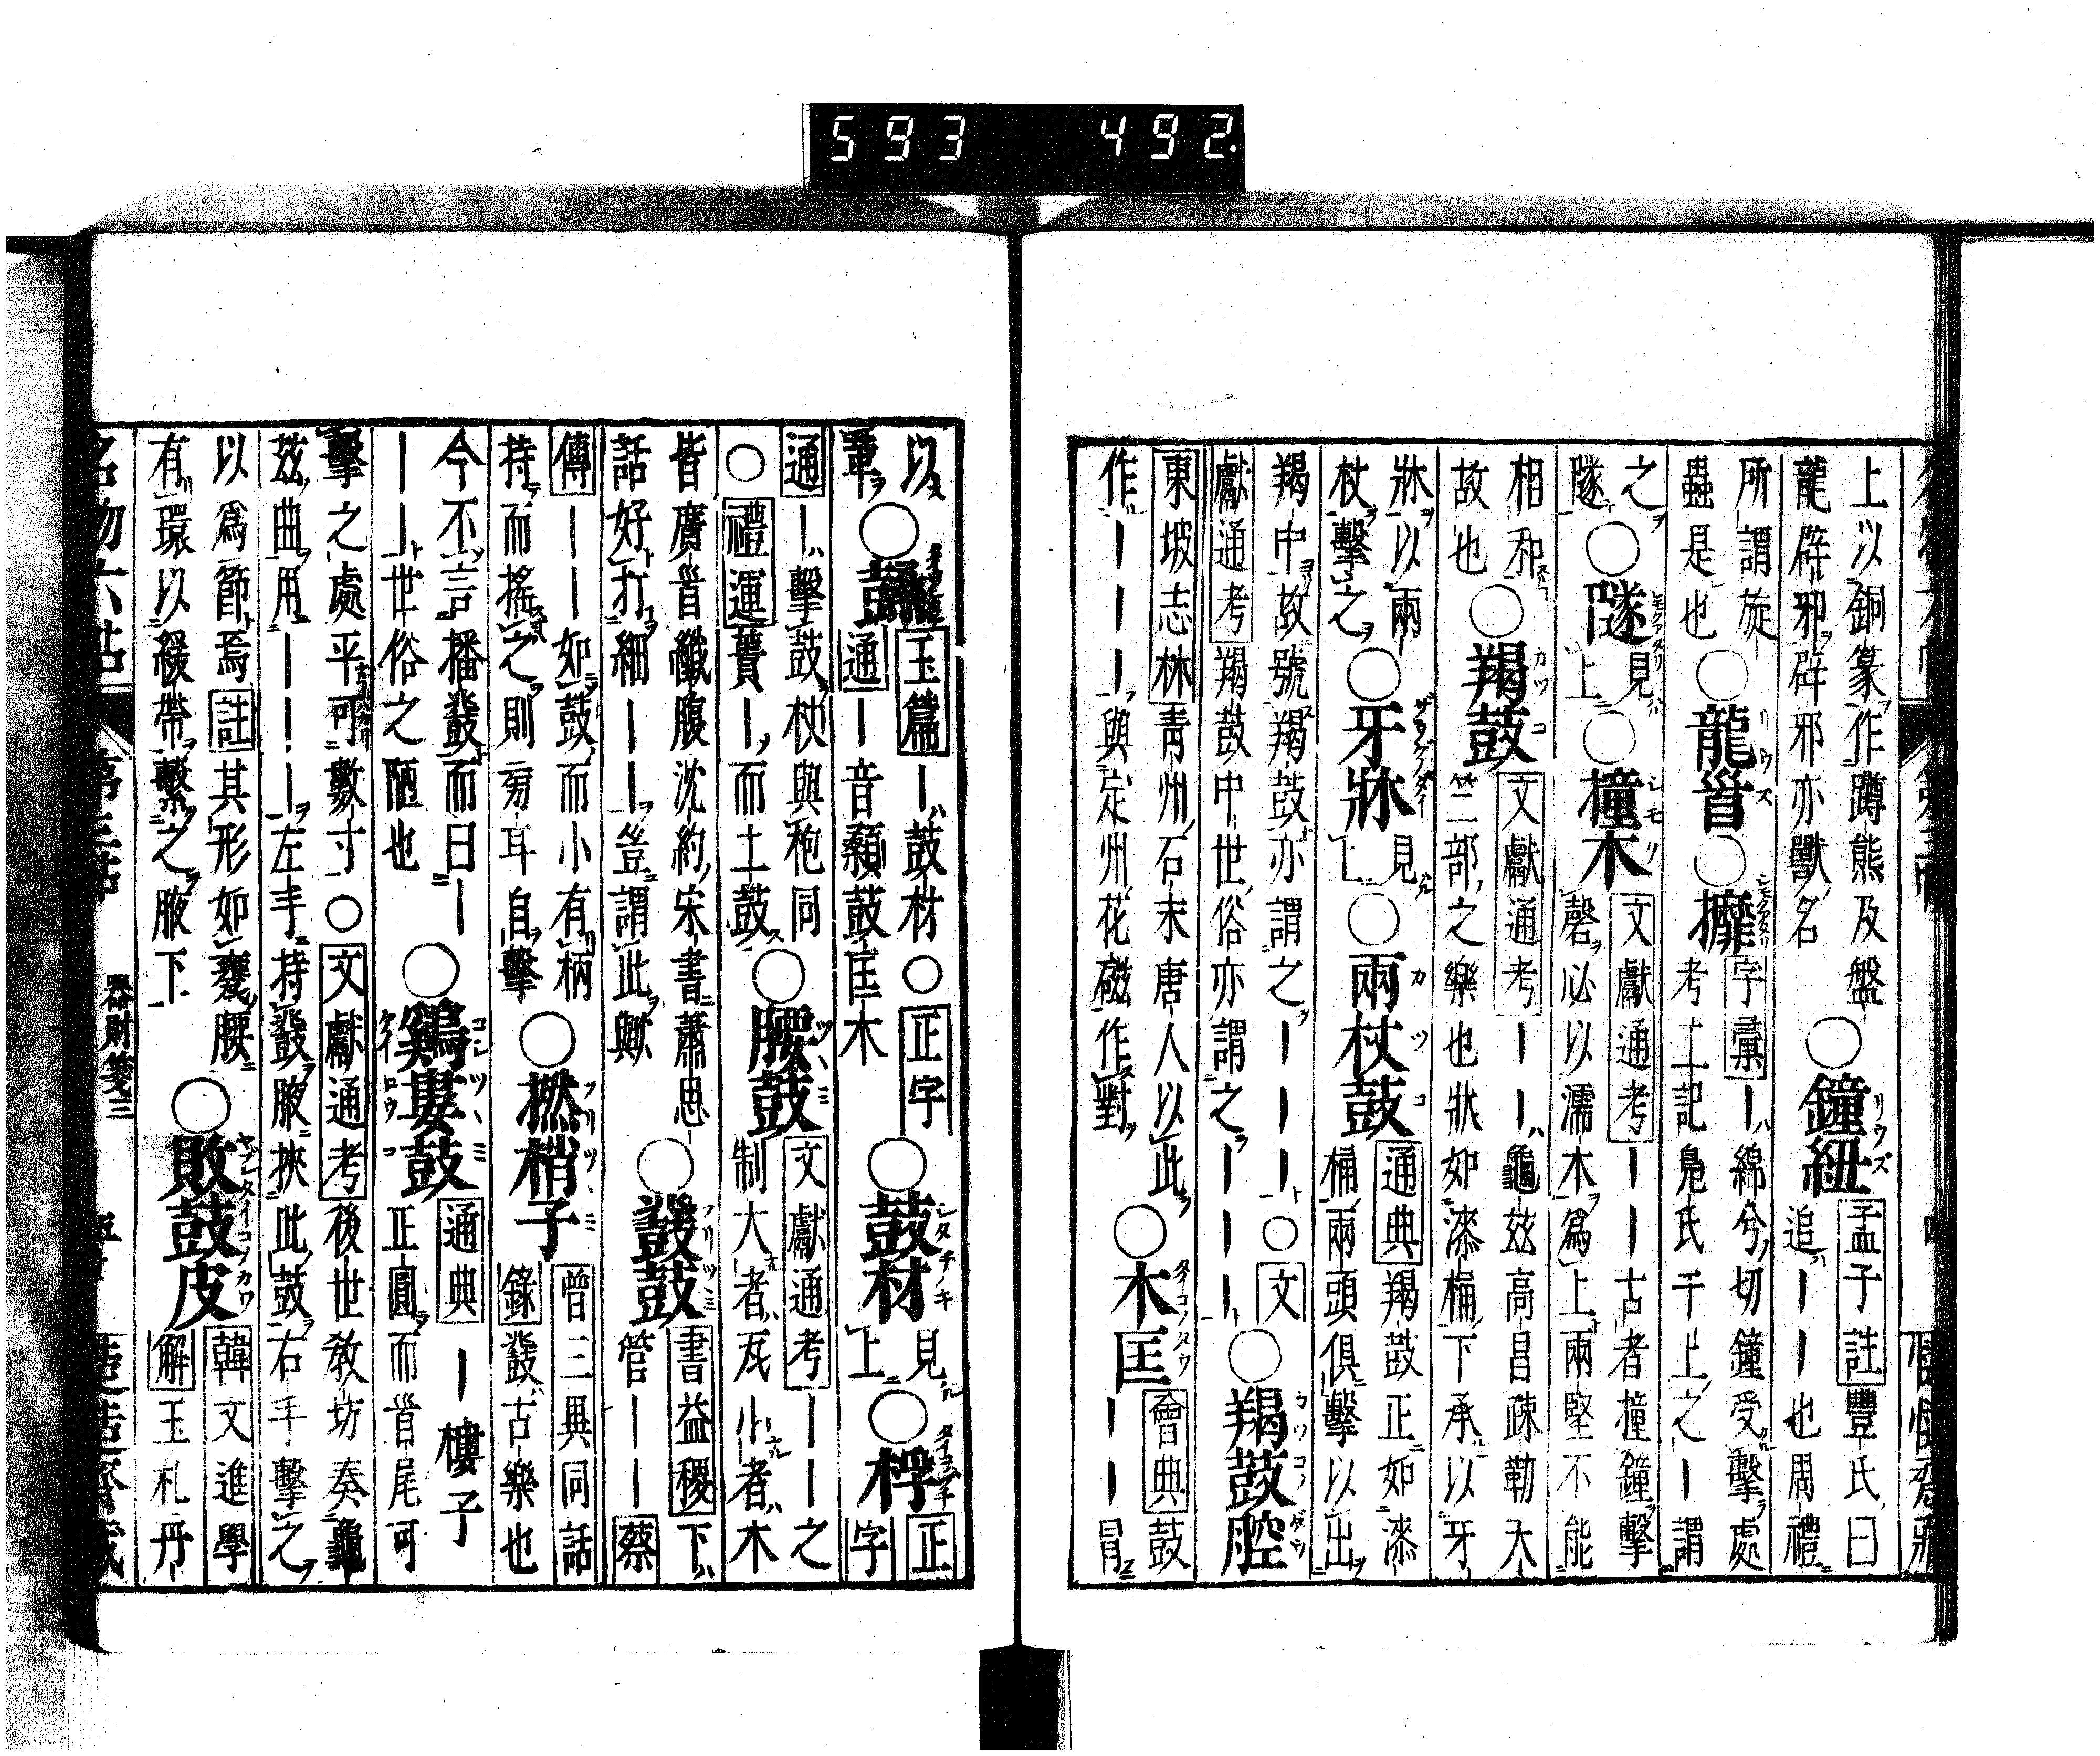 593 492.
上以銅篆作蹲熊及盤
龍辟邪辟邪亦獸名
○鐘紐
孟子註豐氏曰
追｜｜也周禮
所謂旋
蟲是也
○龍𩠐○㩢
字彙｜綿兮切鐘受擊處
考工記鳧氏于上之｜謂
之
隧
○隧
見
上
○撞木
文獻通考｜｜古者撞鐘擊
磬必以濡木為上兩堅不能
相和
故也
○羯鼓
文獻通考｜｜龜茲高昌疎勒大
竺部之樂也狀如漆桶下承以牙
牀以兩
杖擊之
○牙牀
見
上
○兩杖鼓
通典羯鼓正如漆
桶兩頭俱擊以出
羯中故號羯鼓亦謂之｜｜｜○文
獻通考羯鼓中世俗亦謂之｜｜｜
○羯鼓腔
東坡志林青州石末唐人以此
作｜｜｜與定州花磁作對
○木匡
會典鼓
｜｜冒
以
革
○
玉篇｜鼓材○正字
通｜音顙鼓匡木
○鼓材
見
上
○桴
正
字
通｜擊鼓杖與枹同
○禮運蕢｜而土鼓
○腰鼓
文獻通考｜｜之
制大者瓦小者木
皆廣首纖腹沈約宋書蕭思
話好打細｜｜豈謂此歟
○鼗鼓
書益稷下
管｜｜蔡
傳｜｜如鼓而小有柄
持而搖之則旁耳自擊
○撚梢子
曾三異同話
錄鼗古樂也
今不言播鼗而曰｜
｜｜世俗之陋也
○鷄婁鼓
通典｜樓子
正圓而首尾可
擊之處平可數寸○文獻通考後世教坊奏龜
茲曲用｜｜｜左手持鼗腋挾此鼓右手擊之
以為節焉註其形如甕腰
有環以綬帶繫之腋下
○敗鼓皮
韓文進學
解玉札丹
名物六帖
第三帖
器財箋三